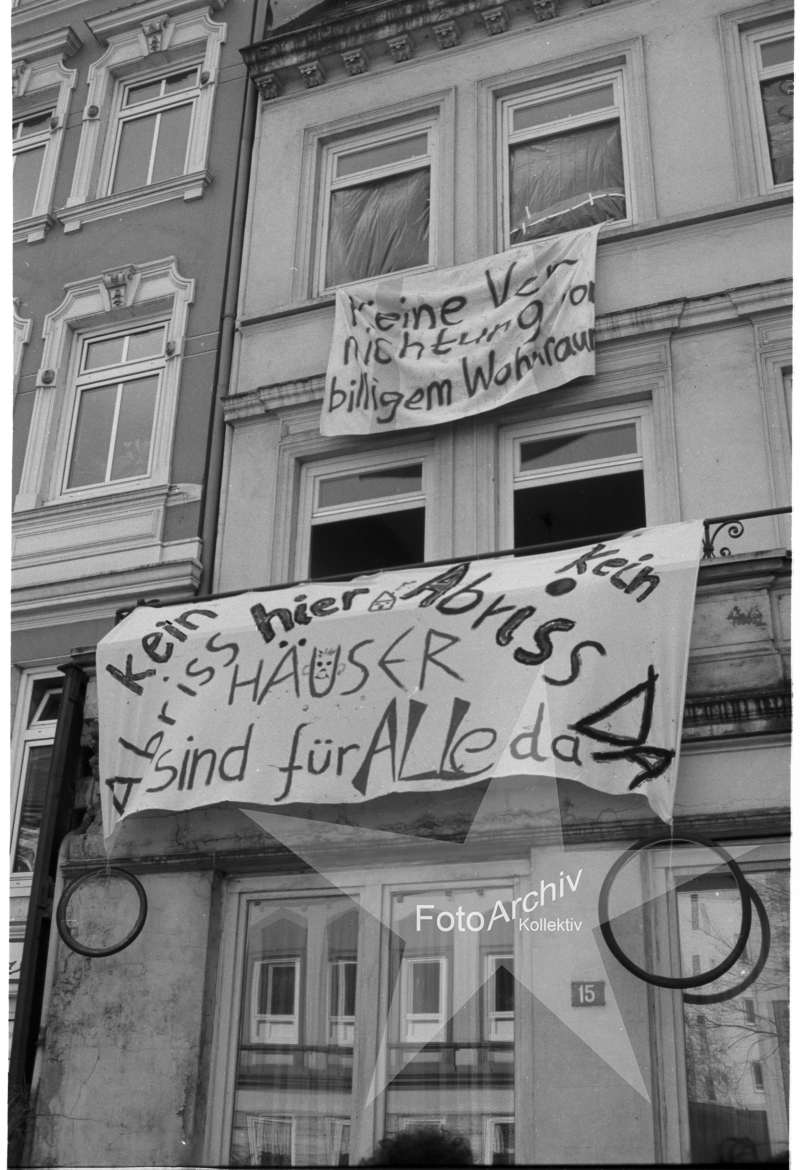 Keine Ver
nichtung von
billigem Wohnraum
Kein
Abriss
hier
Abriss
Kein
HÄUSER
sind für ALLe da
DA
FotoArchiv
Kollektiv
15